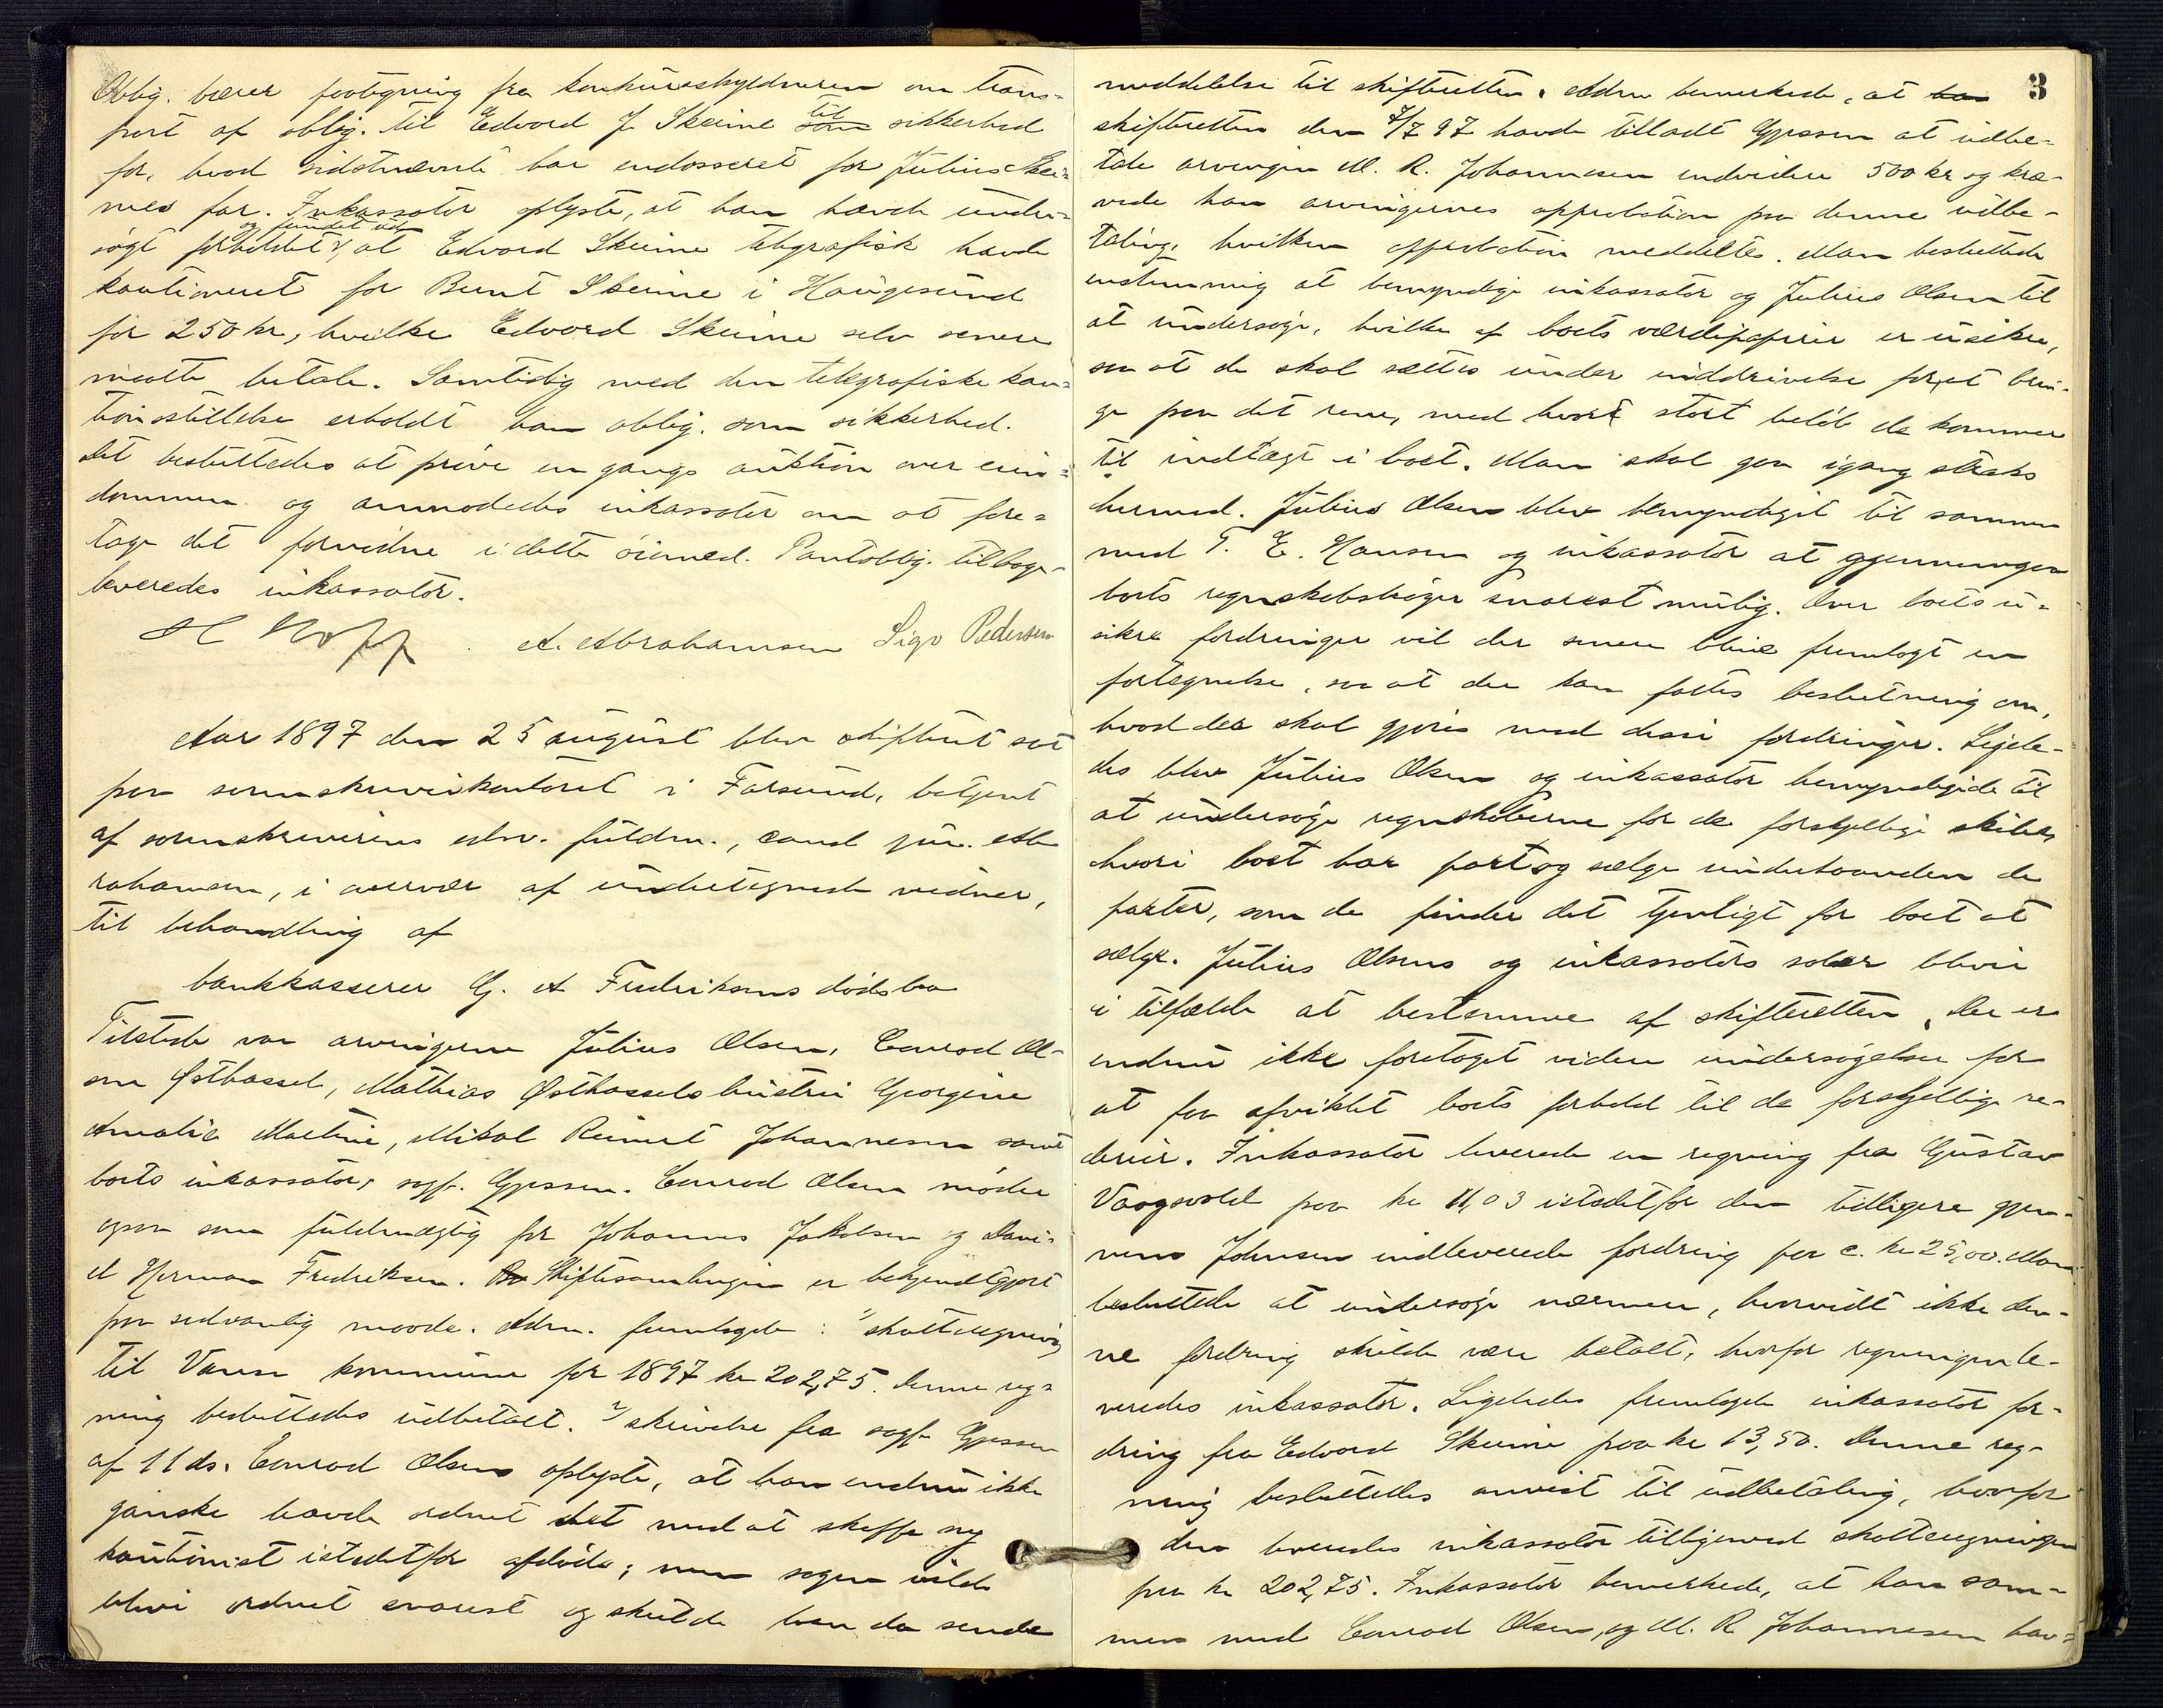 Oblig. bærer paategning fra konkursskyldneren om trans-
port af oblig. til Edvard J Skeime til sikkerhed
for, hvad sidstnævnte har endosseret for Julius Skei-
mes far. Inkassator oplyste, at han havde under-
søgt forholdet og fundet ud, at Edvard Skeime telegrafisk havde
kautioneret for Bernt Skeime i Haugesund
for 250 kr, hvilke Edvard Skeime selv senere
maatte betale. Samtidig med den telegrafiske kau-
tionsstillelse erholdt han oblig. som sikkerhed.
Det besluttedes at prøve en gangs auktion over eien-
dommen og anmodedes inkassator om at fore-
tage det fornødne i dette øiemed. Pantoblig. tilbage-
leveredes inkassator.
A. Abrahamsen Sigv Pedersen
Aar 1897 den 25 august blev skifteret sat
paa sorenskriverkontoret i Farsund, betjent
af sorenskriverens edsv. fuldm., cand jur. Ab-
rahamsen, i overvær af undertegnede vidner,
til behandling af
bankkasserer G. A Fredriksens dødsbo
Tilstede var arvingerne Julius Olsen, Conrad Ol-
sen Østhassel, Mathias Østhassels hustru Georgine
Amalie Martine, Mikal Reinert Johannesen samt
boets inkassator, sagf. Gjessen. Conrad Olsen møder
ogsaa som fuldmægtig for Johannes Jakobsen og Dani-
el Herman Fredriksen. Skiftesamlingen er bekjendtgjort
paa sedvanlig maade. Adm. fremlagde: 1/ skatteregning
til Vanse kommune for 1897 kr 202,75. Denne reg-
ning besluttedes udbetalt. 2/ skrivelse fra sagf. Gjessen
af 11 ds. Conrad Olsen oplyste, at han endnu ikke
ganske havde ordnet det med at skaffe ny
kautionist istedetfor afdøde; men sagen vilde
blive ordnet snarest og skulde han da sende
3
meddelelse til skifteretten. Adm bemerkede, at
skifteretten den 7/7 97 havde tilladt Gjessen at udbe-
tale arvingen M. R. Johannesen endvidere 500 kr og kræ-
vede han arvingernes approbation paa denne udbe-
taling, hvilken approbation meddeltes. Man besluttede
enstemmig at bemyndige inkassator og Julius Olsen til
at undersøge, hvilke af boets værdipapirer er usikre,
saa at de skal sættes under inddrivelse for at brin-
ge paa det rene, med hvor stort beløb de kommer
til indtægt i boet. Man skal gaa igang straks
hermed. Julius Olsen blev bemyndiget til sammen
med T. E. Hansen og inkassator at gjennemgaa
boets regnskabsbøger snarest mulig. Over boets u-
sikre fordringer vil der senere blive fremlagt en
fortegnelse, saa at der kan fattes beslutning om,
hvad der skal gjøres med disse fordringer. Ligele-
des blev Julius Olsen og inkassator bemyndigede til
at undersøge regnskaberne for de forskjellige skibe,
hvori boet har part og sælge underhaanden de
parter, som de finder det tjenligt for boet at
sælge. Julius Olsens og inkassators salær blir
i tilfælde at bestemme af skifteretten. Der er
endnu ikke foretaget videre undersøgelser for
at faa afviklet boets forhold til de forskjellige re-
derier. Inkassator leverede en regning fra Gustav
Vaagsvold paa kr 11,03 istedetfor den tidligere gjen-
nem Johnsen indleverede fordring paa c. kr 25,00. Man
besluttede at undersøge nærmere, hvorvidt ikke den-
ne fordring skulde være betalt, hvorfor regningen le-
veredes inkassator. Ligeledes fremlagde inkassator for-
dring fra Edvard Skeime paa kr 13,50. Denne reg-
ning besluttedes anvist til udbetaling, hvorfor
den leveredes inkassator tilligemed skatteregningen
paa kr 202,75. Inkassator bemerkede, at han sam-
men med Conrad Olsen, og M. R Johannesen hav-